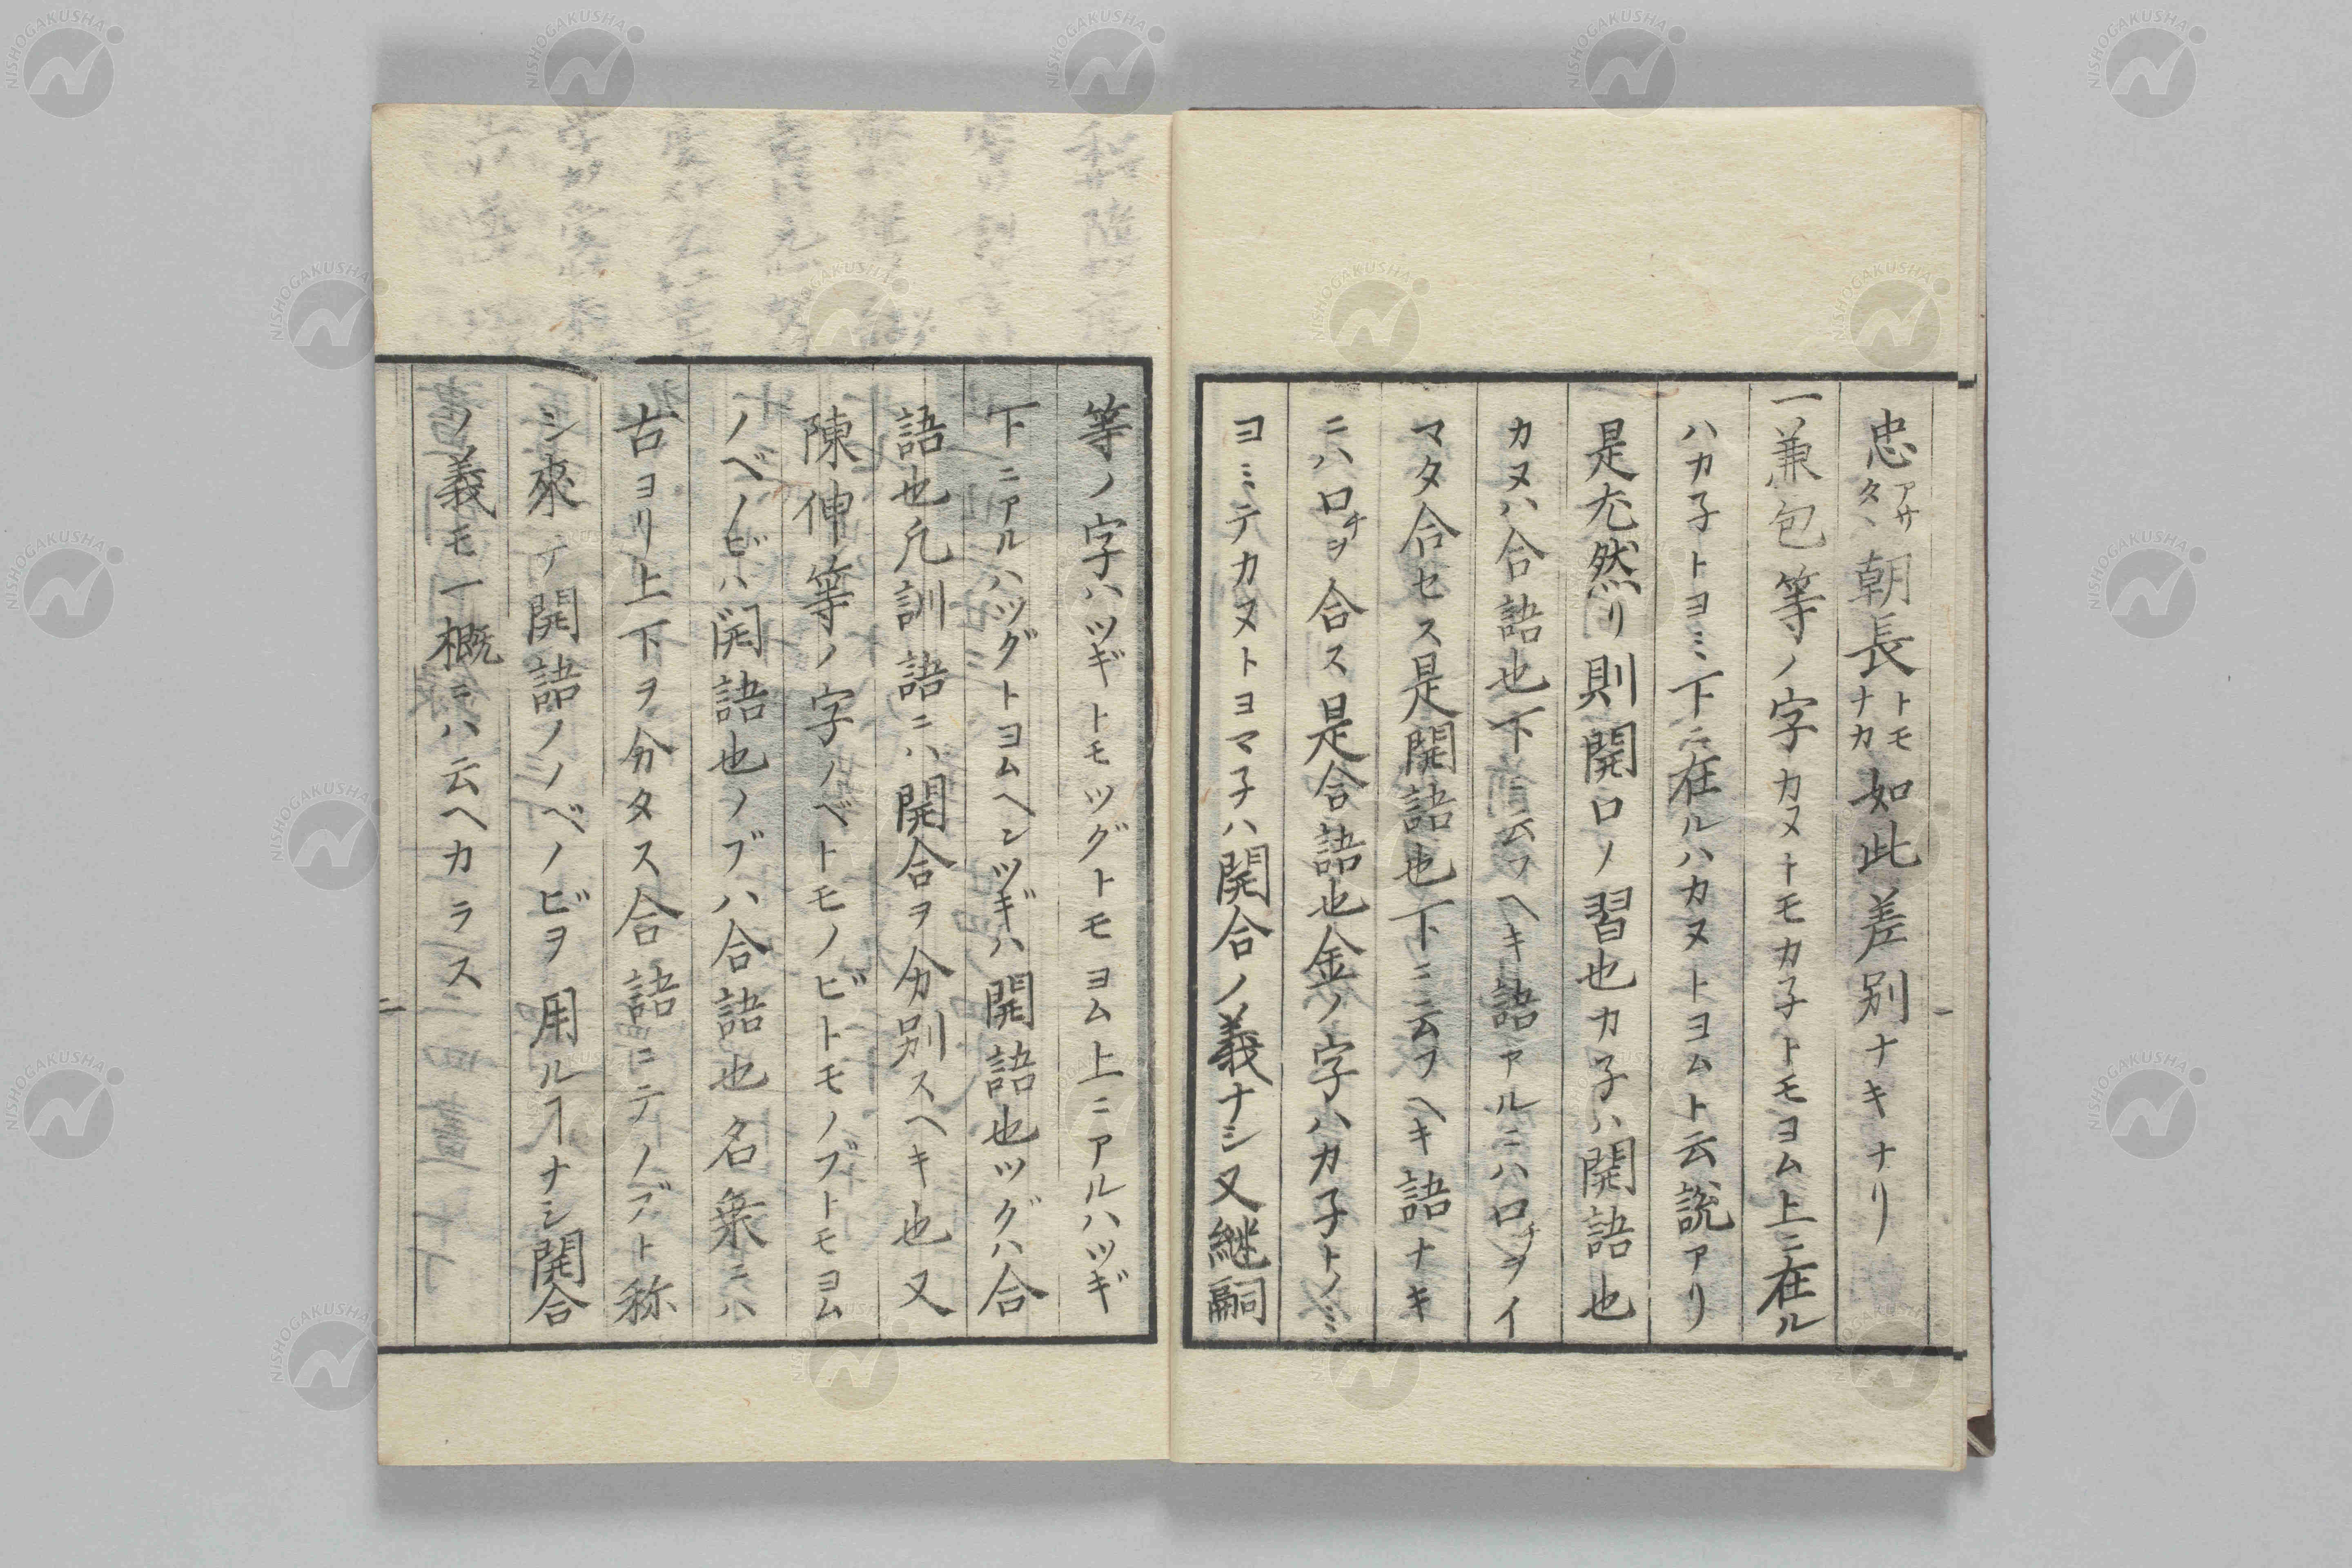 忠アサタヽ朝長トモナカ如此差別ナキナリ
一兼包等ノ字カヌトモカ子トモヨム上ニ在ル
ハカ子トヨミ下ニ在ルハカヌトヨムト云説アリ
是尤然リ則開口ノ習也カ子ハ開語也
カヌハ合語也下ニ云フヘキ語アルニハ口チヲイ
マタ合セス是開語也下ニ云フヘキ語ナキ
ニハ口チヲ合ス是合語也金ノ字ハカ子トノミ
ヨミテカヌトヨマ子ハ開合ノ義ナシ又継嗣
等ノ字ハツギトモツグトモヨム上ニアルハツギ
下ニアルハツグトヨムヘシツギハ開語也ツグハ合
語也凡訓語ニハ開合ヲ分別スヘキ也又
陳伸等ノ字ノベトモノビトモノブトモヨム
ノベノビハ開語也ノブハ合語也名乗ニハ
古ヨリ上下ヲ分タス合語ニテノブト称
シ來テ開語ノノベノビヲ用ルヿナシ開合
ノ義モ一概ニハ云ヘカラス
一
二
NISHOGAKUSHA